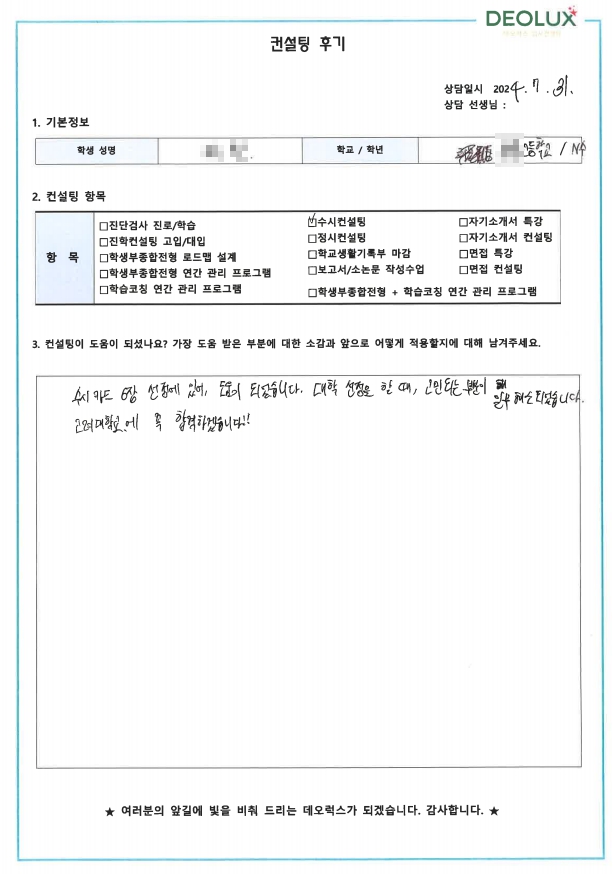 DEOLUX
컨설팅 후기
상담일시 2024. 7. 31.
상담 선생님 :
1. 기본정보
학생 성명 학교 / 학년 고등학교 / N수
2. 컨설팅 항목
항 목
□진단검사 진로/학습 ☑수시컨설팅 □자기소개서 특강
□진학컨설팅 고입/대입 □정시컨설팅 □자기소개서 컨설팅
□학생부종합전형 로드맵 설계 □학교생활기록부 마감 □면접 특강
□학생부종합전형 연간 관리 프로그램 □보고서/소논문 작성수업 □면접 컨설팅
□학습코칭 연간 관리 프로그램 □학생부종합전형 + 학습코칭 연간 관리 프로그램
3. 컨설팅이 도움이 되셨나요? 가장 도움 받은 부분에 대한 소감과 앞으로 어떻게 적용할지에 대해 남겨주세요.
수시 카드 6장 선정에 있어, 도움이 되었습니다. 대학 선정을 할 때, 고민되는 부분이 일부 해소되었습니다.
고려대학교에 꼭 합격하겠습니다!!
★ 여러분의 앞길에 빛을 비춰 드리는 데오럭스가 되겠습니다. 감사합니다. ★